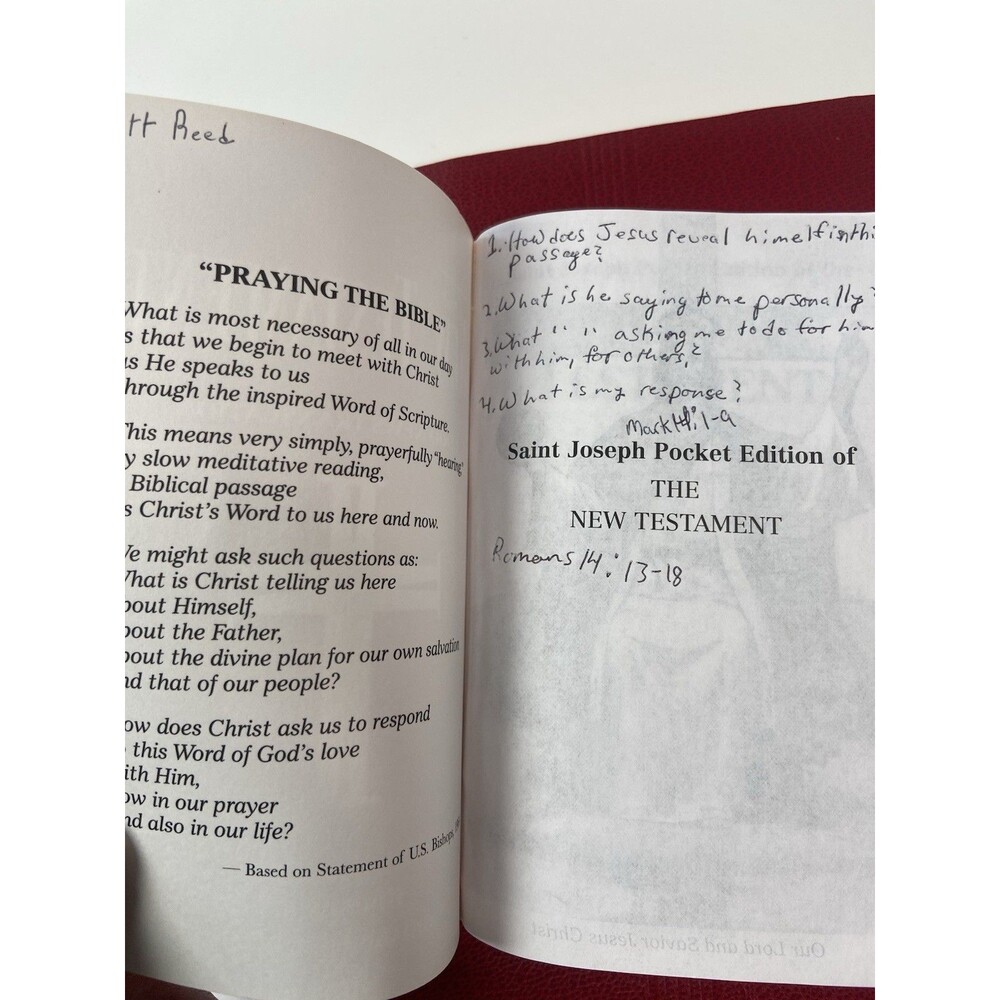 tt Reed
"PRAYING THE BIBLE"
What is most necessary of all in our day
s that we begin to meet with Christ
as He speaks to us
hrough the inspired Word of Scripture.
This means very simply, prayerfully "hearing,"
y slow meditative reading,
Biblical passage
s Christ's Word to us here and now.
We might ask such questions as:
What is Christ telling us here
bout Himself,
bout the Father,
bout the divine plan for our own salvation
nd that of our people?
ow does Christ ask us to respond
this Word of God's love
ith Him,
ow in our prayer
nd also in our life?
— Based on Statement of U.S. Bishops,
1. How does Jesus reveal himelf in thi
passage?
2. What is he saying to me personally?
3. What " " asking me to do for him
with him, for others?
4. What is my response?
Mark :1-9
Saint Joseph Pocket Edition of
THE
NEW TESTAMENT
Romans 14:13-18
Our Lord and Savior Jesus Christ